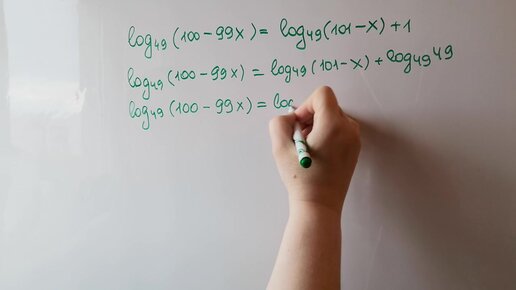 log₄₉(100-99x) = log₄₉(101-x)+1
log₄₉(100-99x) = log₄₉(101-x)+log₄₉49
log₄₉(100-99x) = lo